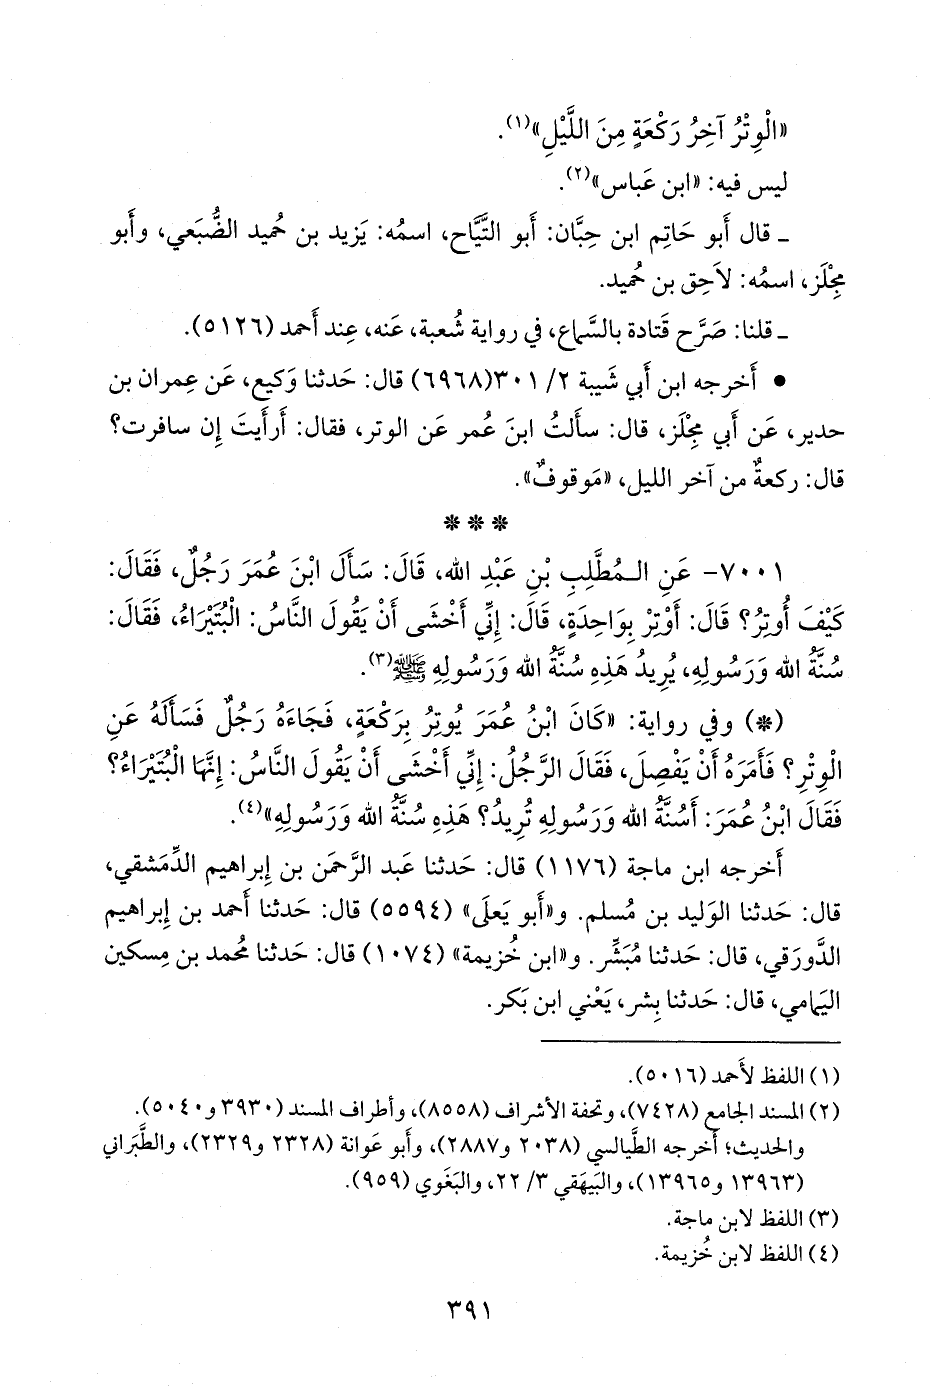 «الْوِتْرُ آخِرُ رَكْعَةٍ مِنَ اللَّيْلِ»(١).
ليس فيه: «ابن عَباس»(٢).
ـ قال أَبو حَاتِم ابن حِبَّان: أَبو التَّيَّاح، اسمُه: يَزيد بن حُميد الضُّبَعي، وأَبو
مِجْلَز، اسمُه: لاَحِق بن حُميد.
ـ قلنا: صَرَّح قَتادة بالسَّماع، في رواية شُعبة، عَنه، عِند أَحمد (٥١٢٦).
• أَخرجه ابن أَبي شَيبة ٢/ ٣٠١(٦٩٦٨) قال: حَدثنا وَكيع، عَن عِمران بن
حدير، عَن أَبي مِجْلَز، قال: سأَلتُ ابنَ عُمر عَن الوتر، فقال: أَرأَيتَ إِن سافرت؟
قال: ركعةٌ من آخر الليل، «مَوقوفٌ».
* * *
٧٠٠١- عَنِ الـمُطَّلِبِ بْنِ عَبْدِ الله، قَالَ: سَأَلَ ابْنَ عُمَرَ رَجُلٌ، فَقَالَ:
كَيْفَ أُوتِرُ؟ قَالَ: أَوْتِرْ بِوَاحِدَةٍ، قَالَ: إِنِّي أَخْشَى أَنْ يَقُولَ النَّاسُ: الْبُتَيْرَاءُ، فَقَالَ:
سُنَّةُ الله وَرَسُولِهِ، يُرِيدُ هَذِهِ سُنَّةُ الله وَرَسُولِهِ ﷺ(٣).
(*) وفي رواية: «كَانَ ابْنُ عُمَرَ يُوتِرُ بِرَكْعَةٍ، فَجَاءَهُ رَجُلٌ فَسَأَلَهُ عَنِ
الْوِتْرِ؟ فَأَمَرَهُ أَنْ يَفْصِلَ، فَقَالَ الرَّجُلُ: إِنِّي أَخْشَى أَنْ يَقُولَ النَّاسُ: إِنَّهَا الْبُتَيْرَاءُ؟
فَقَالَ ابْنُ عُمَرَ: أَسُنَّةُ الله وَرَسُولِهِ تُرِيدُ؟ هَذِهِ سُنَّةُ الله وَرَسُولِهِ»(٤).
أَخرجه ابن ماجة (١١٧٦) قال: حَدثنا عَبد الرَّحمَن بن إِبراهيم الدِّمَشقي،
قال: حَدثنا الوَليد بن مُسلم. و«أَبو يَعلَى» (٥٥٩٤) قال: حَدثنا أَحمد بن إِبراهيم
الدَّورَقي، قال: حَدثنا مُبَشِّر. و«ابن خُزيمة» (١٠٧٤) قال: حَدثنا مُحمد بن مِسكين
اليَمامي، قال: حَدثنا بِشر، يَعْني ابن بَكر.
(١) اللفظ لأَحمد (٥٠١٦).
(٢) المسند الجامع (٧٤٢٨)، وتحفة الأشراف (٨٥٥٨)، وأطراف المسند (٣٩٣٠ و٥٠٤٠).
والحديث؛ أَخرجه الطَّيالسي (٢٠٣٨ و٢٨٨٧)، وأَبو عَوانة (٢٣٢٨ و٢٣٢٩)، والطَّبَراني
(١٣٩٦٣ و١٣٩٦٥)، والبَيهَقي ٣/ ٢٢، والبَغَوي (٩٥٩).
(٣) اللفظ لابن ماجة.
(٤) اللفظ لابن خُزيمة.
٣٩١